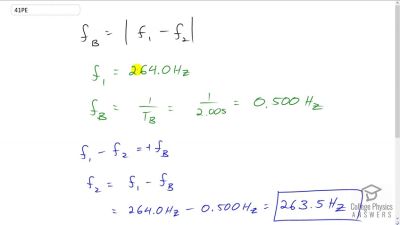 41PE
f_B = | f_1 - f_2 |
f_1 = 264.0 Hz
f_B = 1/T_B = 1/2.00s = 0.500 Hz
f_1 - f_2 = + f_B
f_2 = f_1 - f_B
= 264.0 Hz - 0.500 Hz = 263.5 Hz
College Physics
ANSWERS